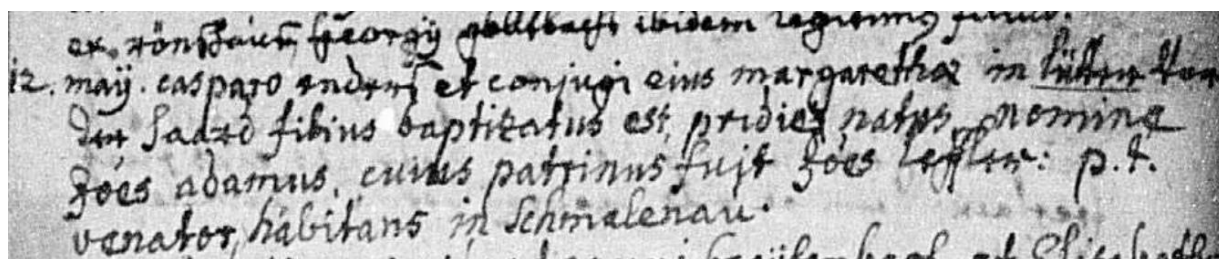 ex röns Georgÿ ibidem legitimus filius.
12. maÿ. casparo enders et conjugi eius margarethæ in lütter von
der haard filius baptizatus est, pridie natus, nomine
Joẽs adamus, cuius patrinus fuit Joẽs leffler: p. t.
venator, habitans in Schmalenau.
et Elisabetha